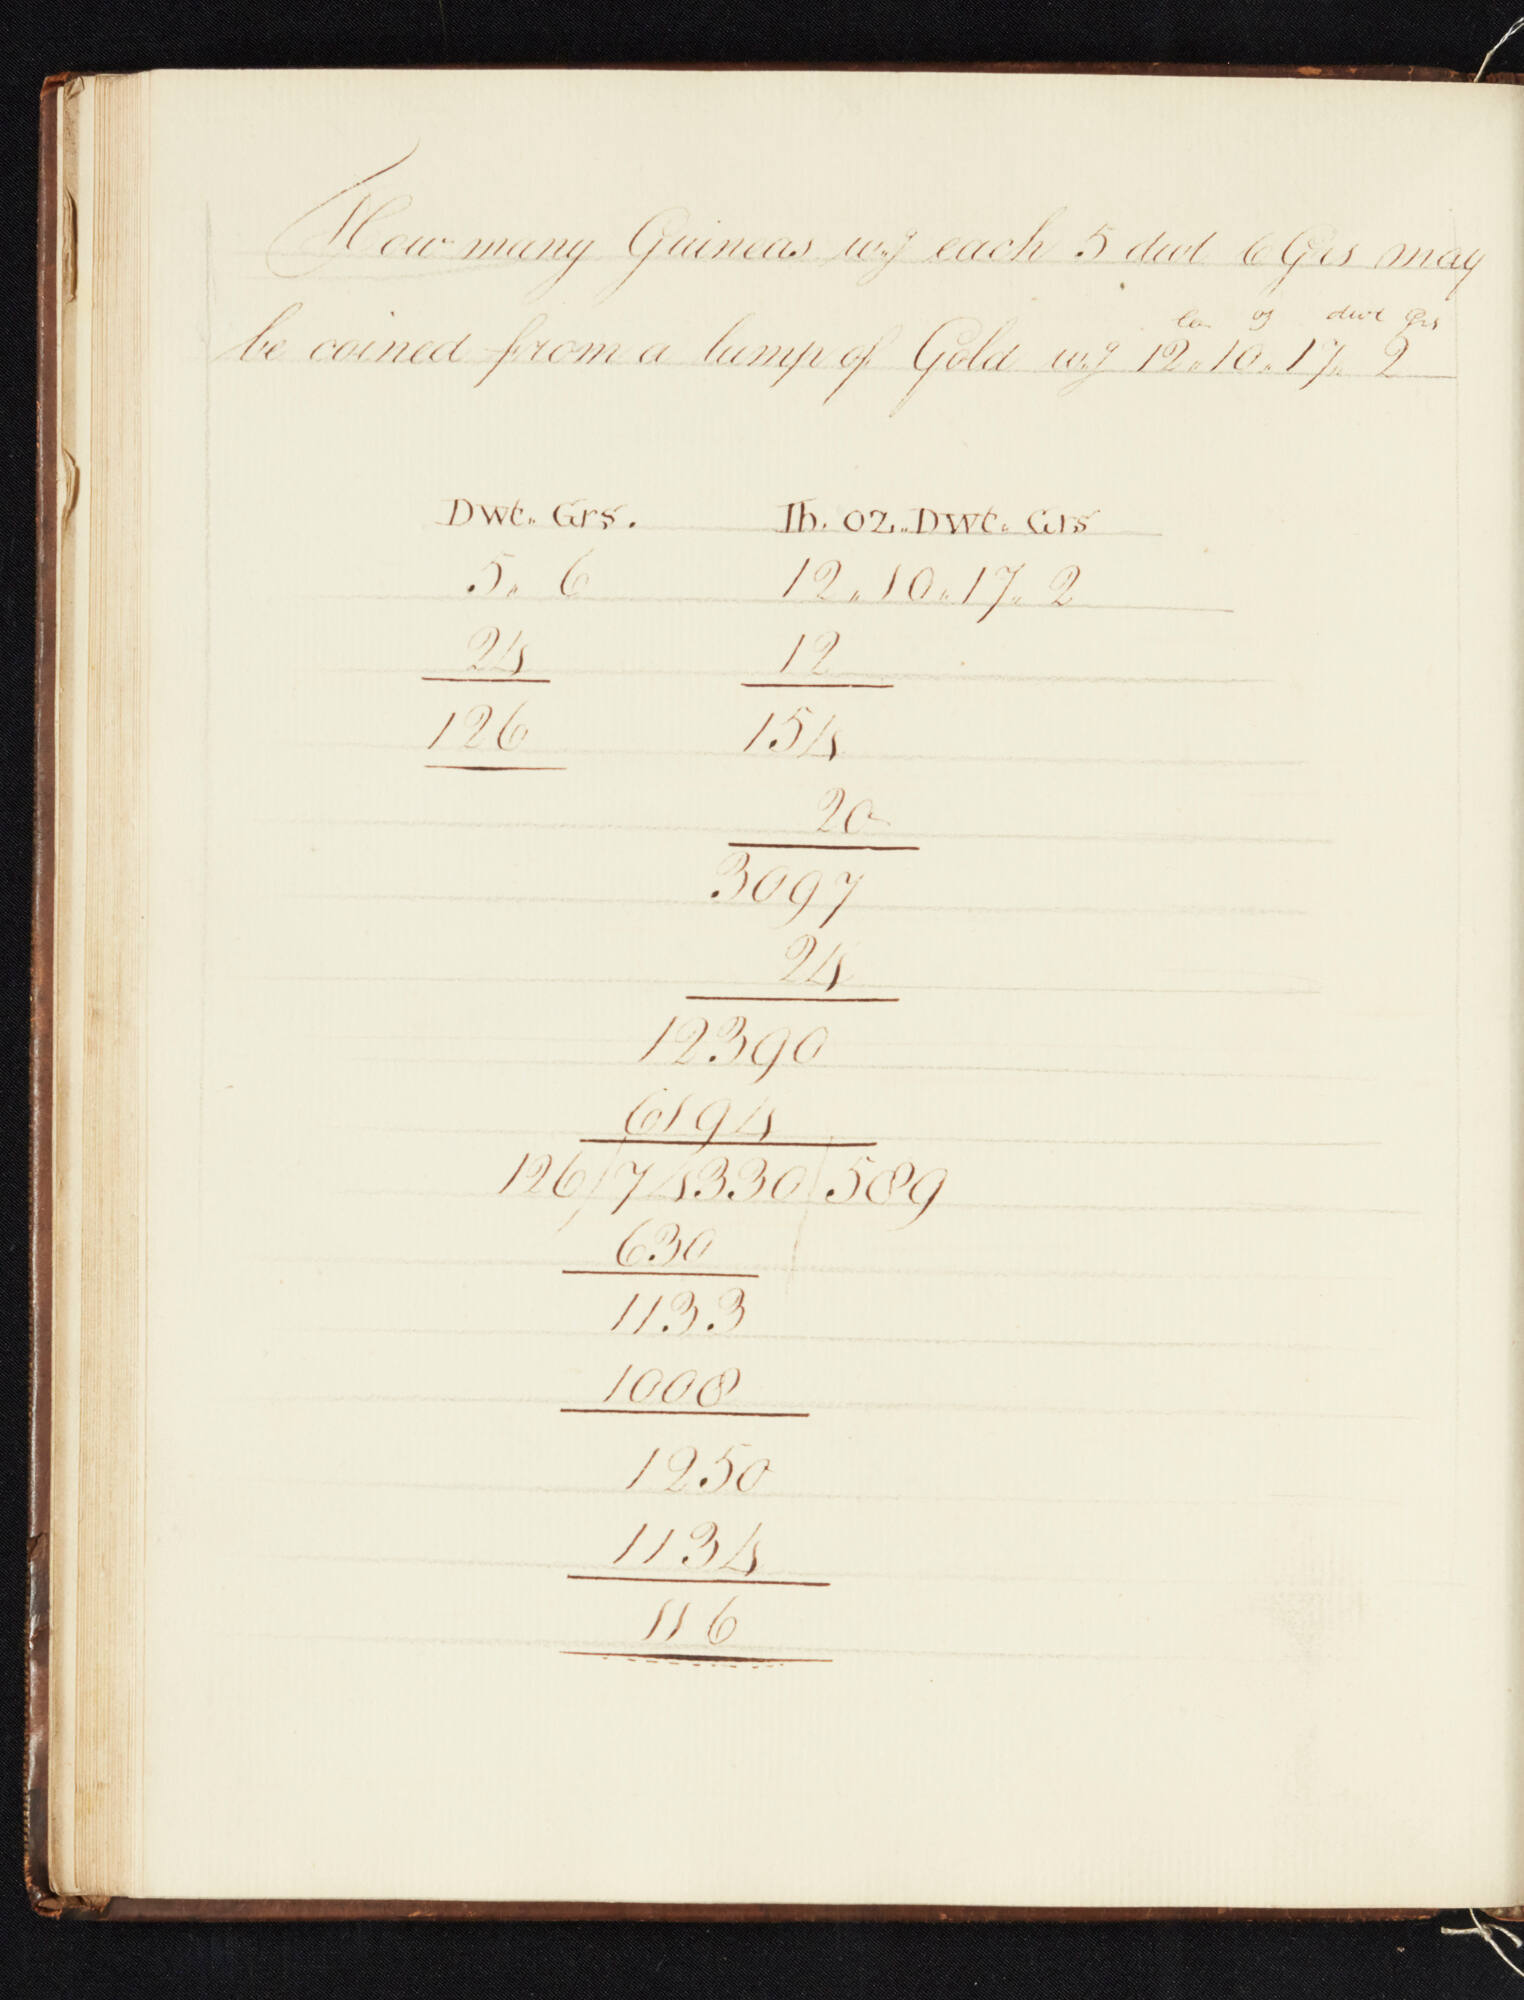 How many Guineas wg each 5 dwt 6 Grs may
lb oz dwt Grs
be coined from a lump of Gold wg 12" 10" 17" 2
Dwt" Grs. lb. oz" Dwt" Grs
5" 6 12" 10" 17" 2
24 12
126 154
20
3097
24
12390
6194
126)74330(589
630
1133
1008
1250
1134
116